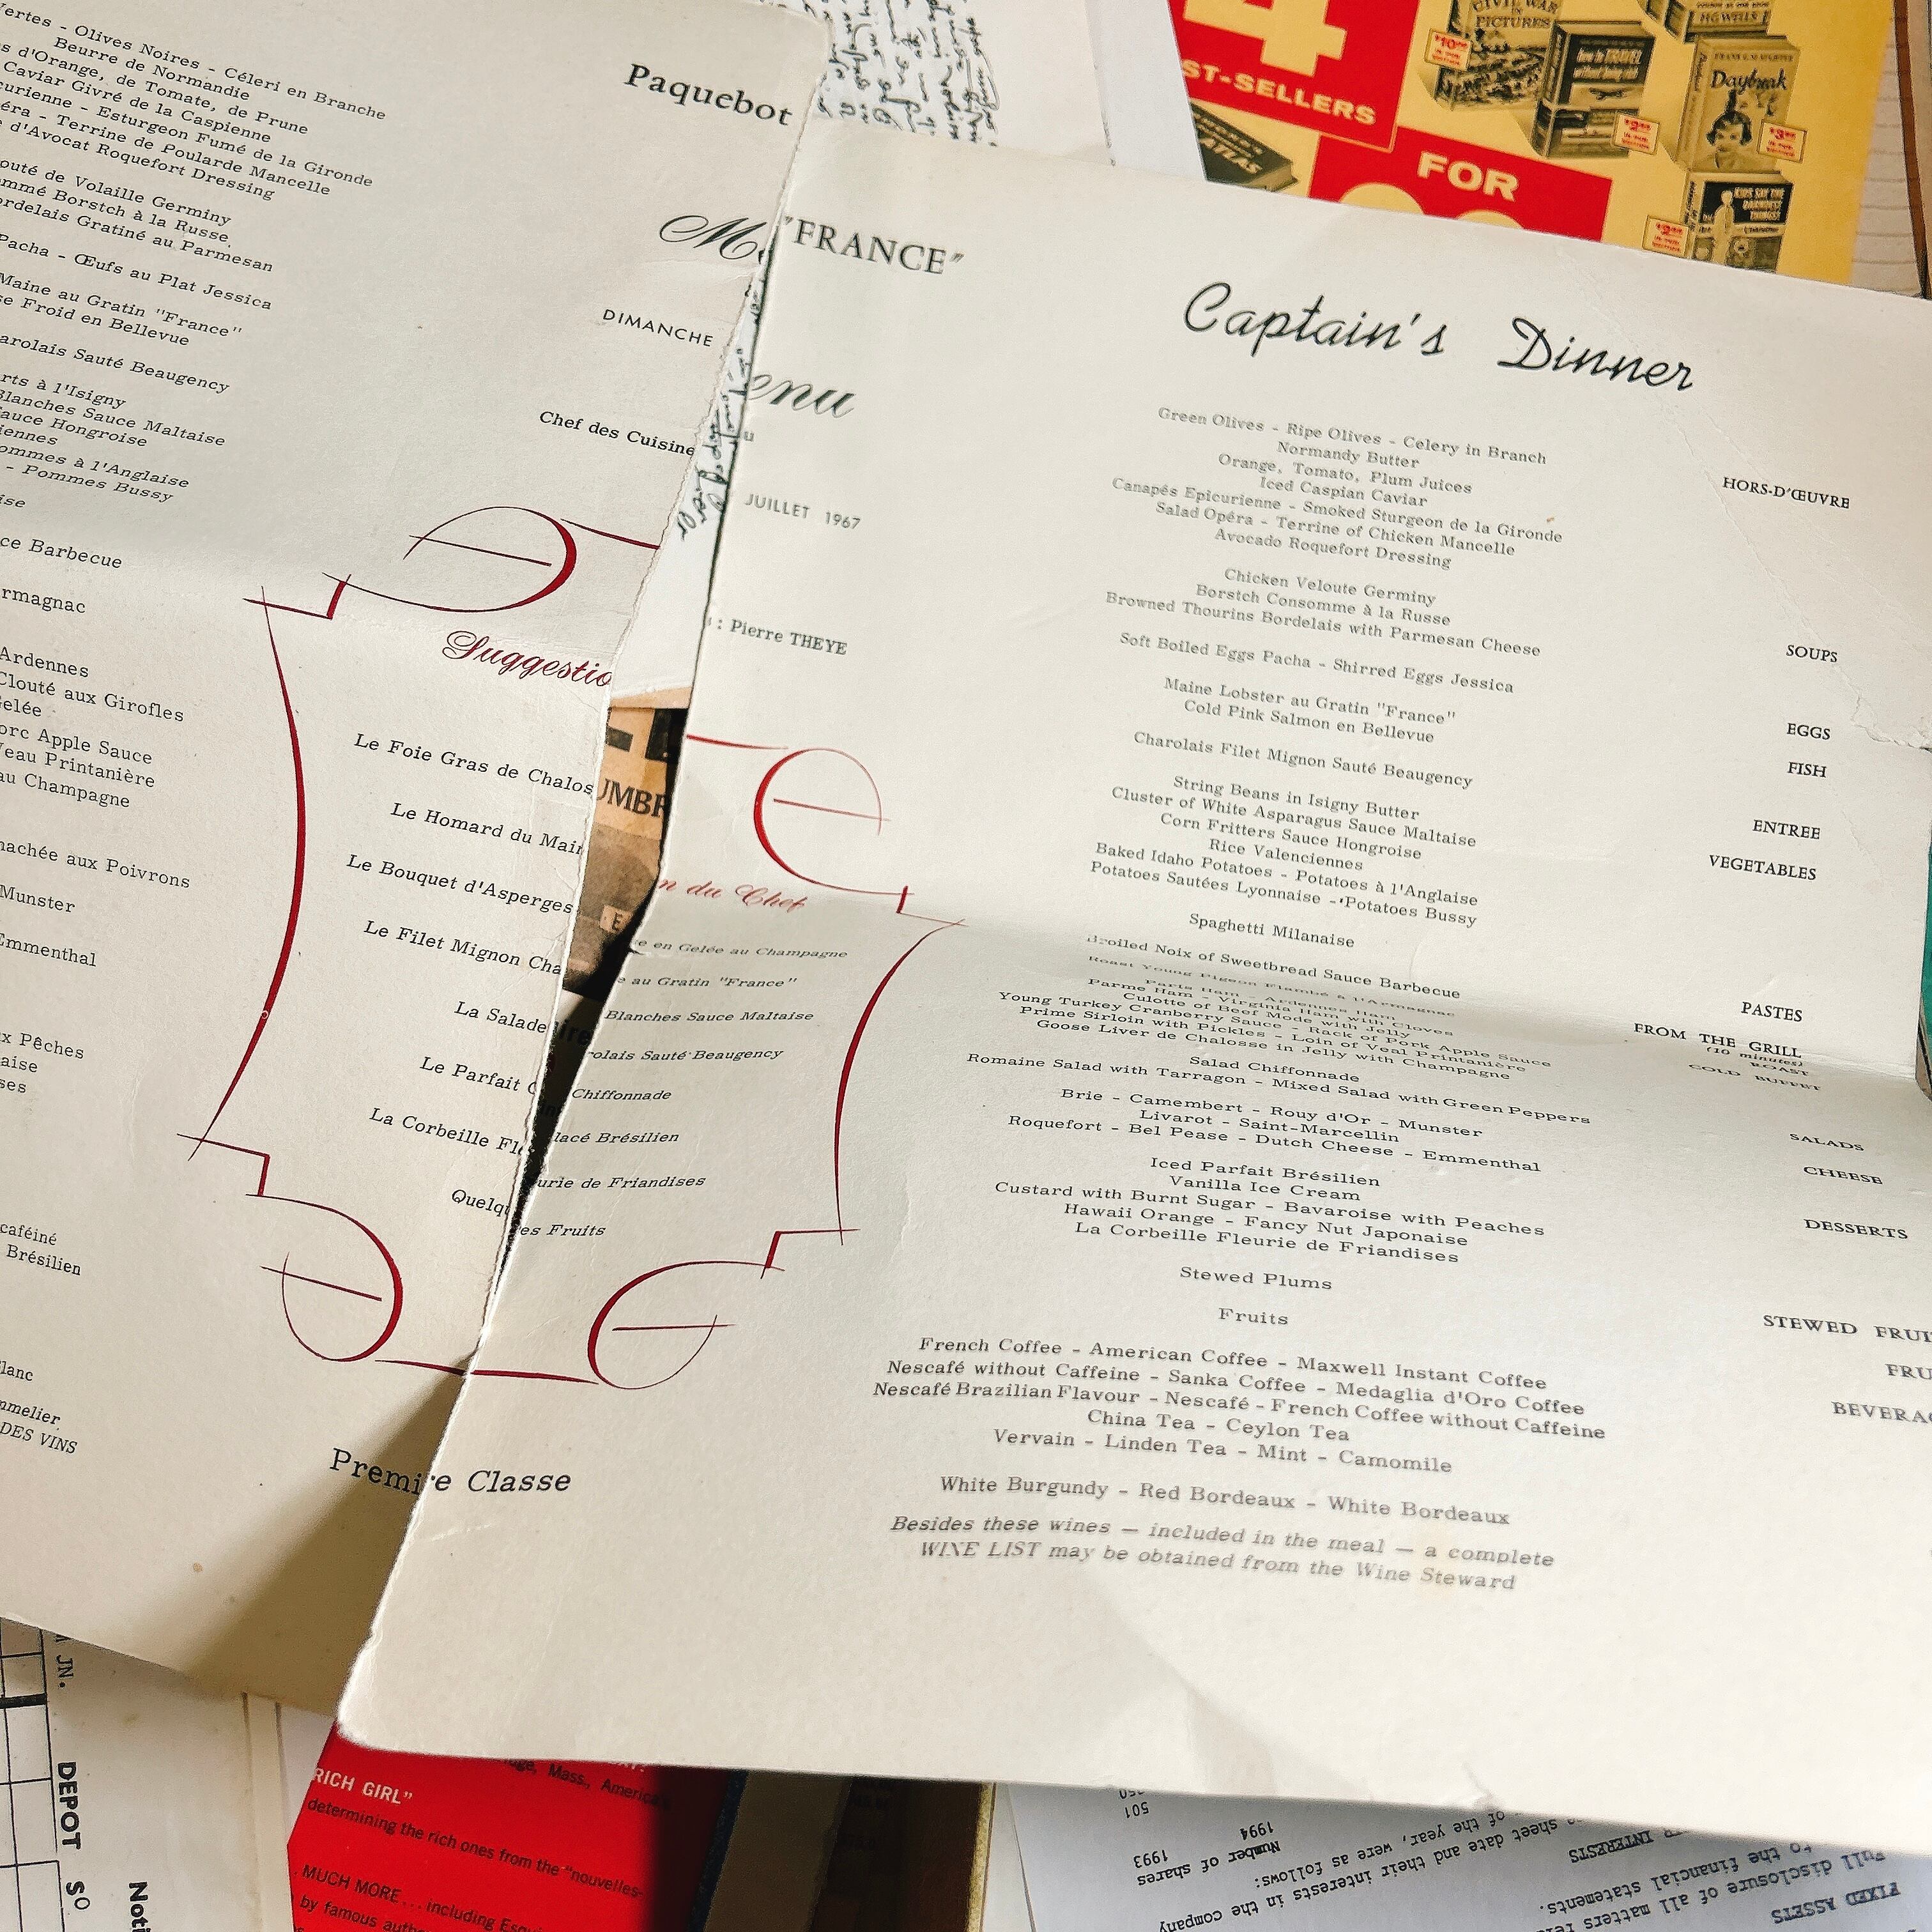 Vertes - Olives Noires - Céleri en Branche
Beurre de Normandie
s d'Orange, de Tomate, de Prune
Caviar Givré de la Caspienne
curienne - Esturgeon Fumé de la Gironde
éra - Terrine de Poularde Mancelle
d'Avocat Roquefort Dressing
outé de Volaille Germiny
ommé Borstch à la Russe.
ordelais Gratiné au Parmesan
Pacha - Œufs au Plat Jessica
Maine au Gratin "France"
se Froid en Bellevue
arolais Sauté Beaugency
rts à l'Isigny
Blanches Sauce Maltaise
auce Hongroise
iennes
ommes à l'Anglaise
- Pommes Bussy
ise
ce Barbecue
rmagnac
Ardennes
Clouté aux Girofles
Gelée
orc Apple Sauce
Veau Printanière
au Champagne
nachée aux Poivrons
Munster
Emmenthal
x Pêches
aise
ses
caféiné
Brésilien
lanc
mmelier
DES VINS
Paquebot
Me
DIMANCHE
Chef des Cuisine
Suggestio
Le Foie Gras de Chalos
Le Homard du Main
Le Bouquet d'Asperges
Le Filet Mignon Cha
La Salade
Le Parfait G
La Corbeille Fle
Quelqu
Premi
"FRANCE"
enu
u
JUILLET 1967
s : Pierre THEYE
n du Chef
e en Gelée au Champagne
e au Gratin "France"
Blanches Sauce Maltaise
rolais Sauté Beaugency
Chiffonnade
lacé Brésilien
urie de Friandises
es Fruits
re Classe
Captain's Dinner
Green Olives - Ripe Olives - Celery in Branch
Normandy Butter
Orange, Tomato, Plum Juices
Iced Caspian Caviar
Canapés Epicurienne - Smoked Sturgeon de la Gironde
Salad Opéra - Terrine of Chicken Mancelle
Avocado Roquefort Dressing
HORS-D'ŒUVRE
Chicken Veloute Germiny
Borstch Consomme à la Russe
Browned Thourins Bordelais with Parmesan Cheese
SOUPS
Soft Boiled Eggs Pacha - Shirred Eggs Jessica
EGGS
Maine Lobster au Gratin "France"
Cold Pink Salmon en Bellevue
FISH
Charolais Filet Mignon Sauté Beaugency
ENTREE
String Beans in Isigny Butter
Cluster of White Asparagus Sauce Maltaise
Corn Fritters Sauce Hongroise
Rice Valenciennes
Baked Idaho Potatoes - Potatoes à l'Anglaise
Potatoes Sautées Lyonnaise - Potatoes Bussy
VEGETABLES
Spaghetti Milanaise
PASTES
Broiled Noix of Sweetbread Sauce Barbecue
FROM THE GRILL
(10 minutes)
Roast Young Pigeon Flambé à l'Armagnac
ROAST
Paris Ham - Ardennes Ham
Parme Ham - Virginia Ham with Cloves
Culotte of Beef Mode with Jelly
Young Turkey Cranberry Sauce - Rack of Pork Apple Sauce
Prime Sirloin with Pickles - Loin of Veal Printanière
Goose Liver de Chalosse in Jelly with Champagne
COLD BUFFET
Salad Chiffonnade
Romaine Salad with Tarragon - Mixed Salad with Green Peppers
SALADS
Brie - Camembert - Rouy d'Or - Munster
Livarot - Saint-Marcellin
Roquefort - Bel Pease - Dutch Cheese - Emmenthal
CHEESE
Iced Parfait Brésilien
Vanilla Ice Cream
Custard with Burnt Sugar - Bavaroise with Peaches
Hawaii Orange - Fancy Nut Japonaise
La Corbeille Fleurie de Friandises
DESSERTS
Stewed Plums
STEWED FRUI
Fruits
FRU
French Coffee - American Coffee - Maxwell Instant Coffee
Nescafé without Caffeine - Sanka Coffee - Medaglia d'Oro Coffee
Nescafé Brazilian Flavour - Nescafé - French Coffee without Caffeine
China Tea - Ceylon Tea
Vervain - Linden Tea - Mint - Camomile
BEVERAG
White Burgundy - Red Bordeaux - White Bordeaux
Besides these wines — included in the meal — a complete
WINE LIST may be obtained from the Wine Steward
4
ST-SELLERS
FOR
CIVIL WAR
IN
PICTURES
H.G. WELLS
Daybreak
ATLAS
KIDS SAY THE
DARNDEST
THINGS!
UMBR
E
JN.
DEPOT
Noti
RICH GIRL"
ge, Mass., America's
determining the rich ones from the "nouvelles-
MUCH MORE... including Esqu
by famous autho
FIXED ASSETS
Full disclosure of all matters re
to the financial statements.
INTERESTS
sheet date and their interests in the company
of the year, were as follows:
Number of shares
1994
1993
501